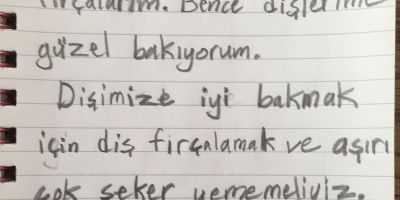 fırçalarım. Bence dişlerime
güzel bakıyorum.
Dişimize iyi bakmak
için diş fırçalamak ve aşırı
çok şeker yememeliyiz.